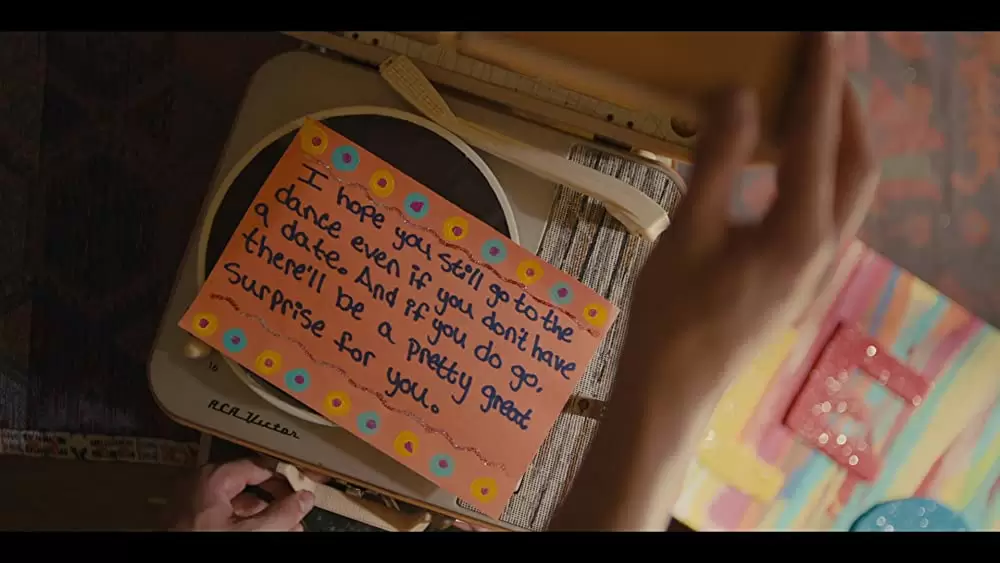 I hope you still go to the
dance even if you don't have
a date. And if you do go,
there'll be a pretty great
surprise for you.
16
RCA Victor